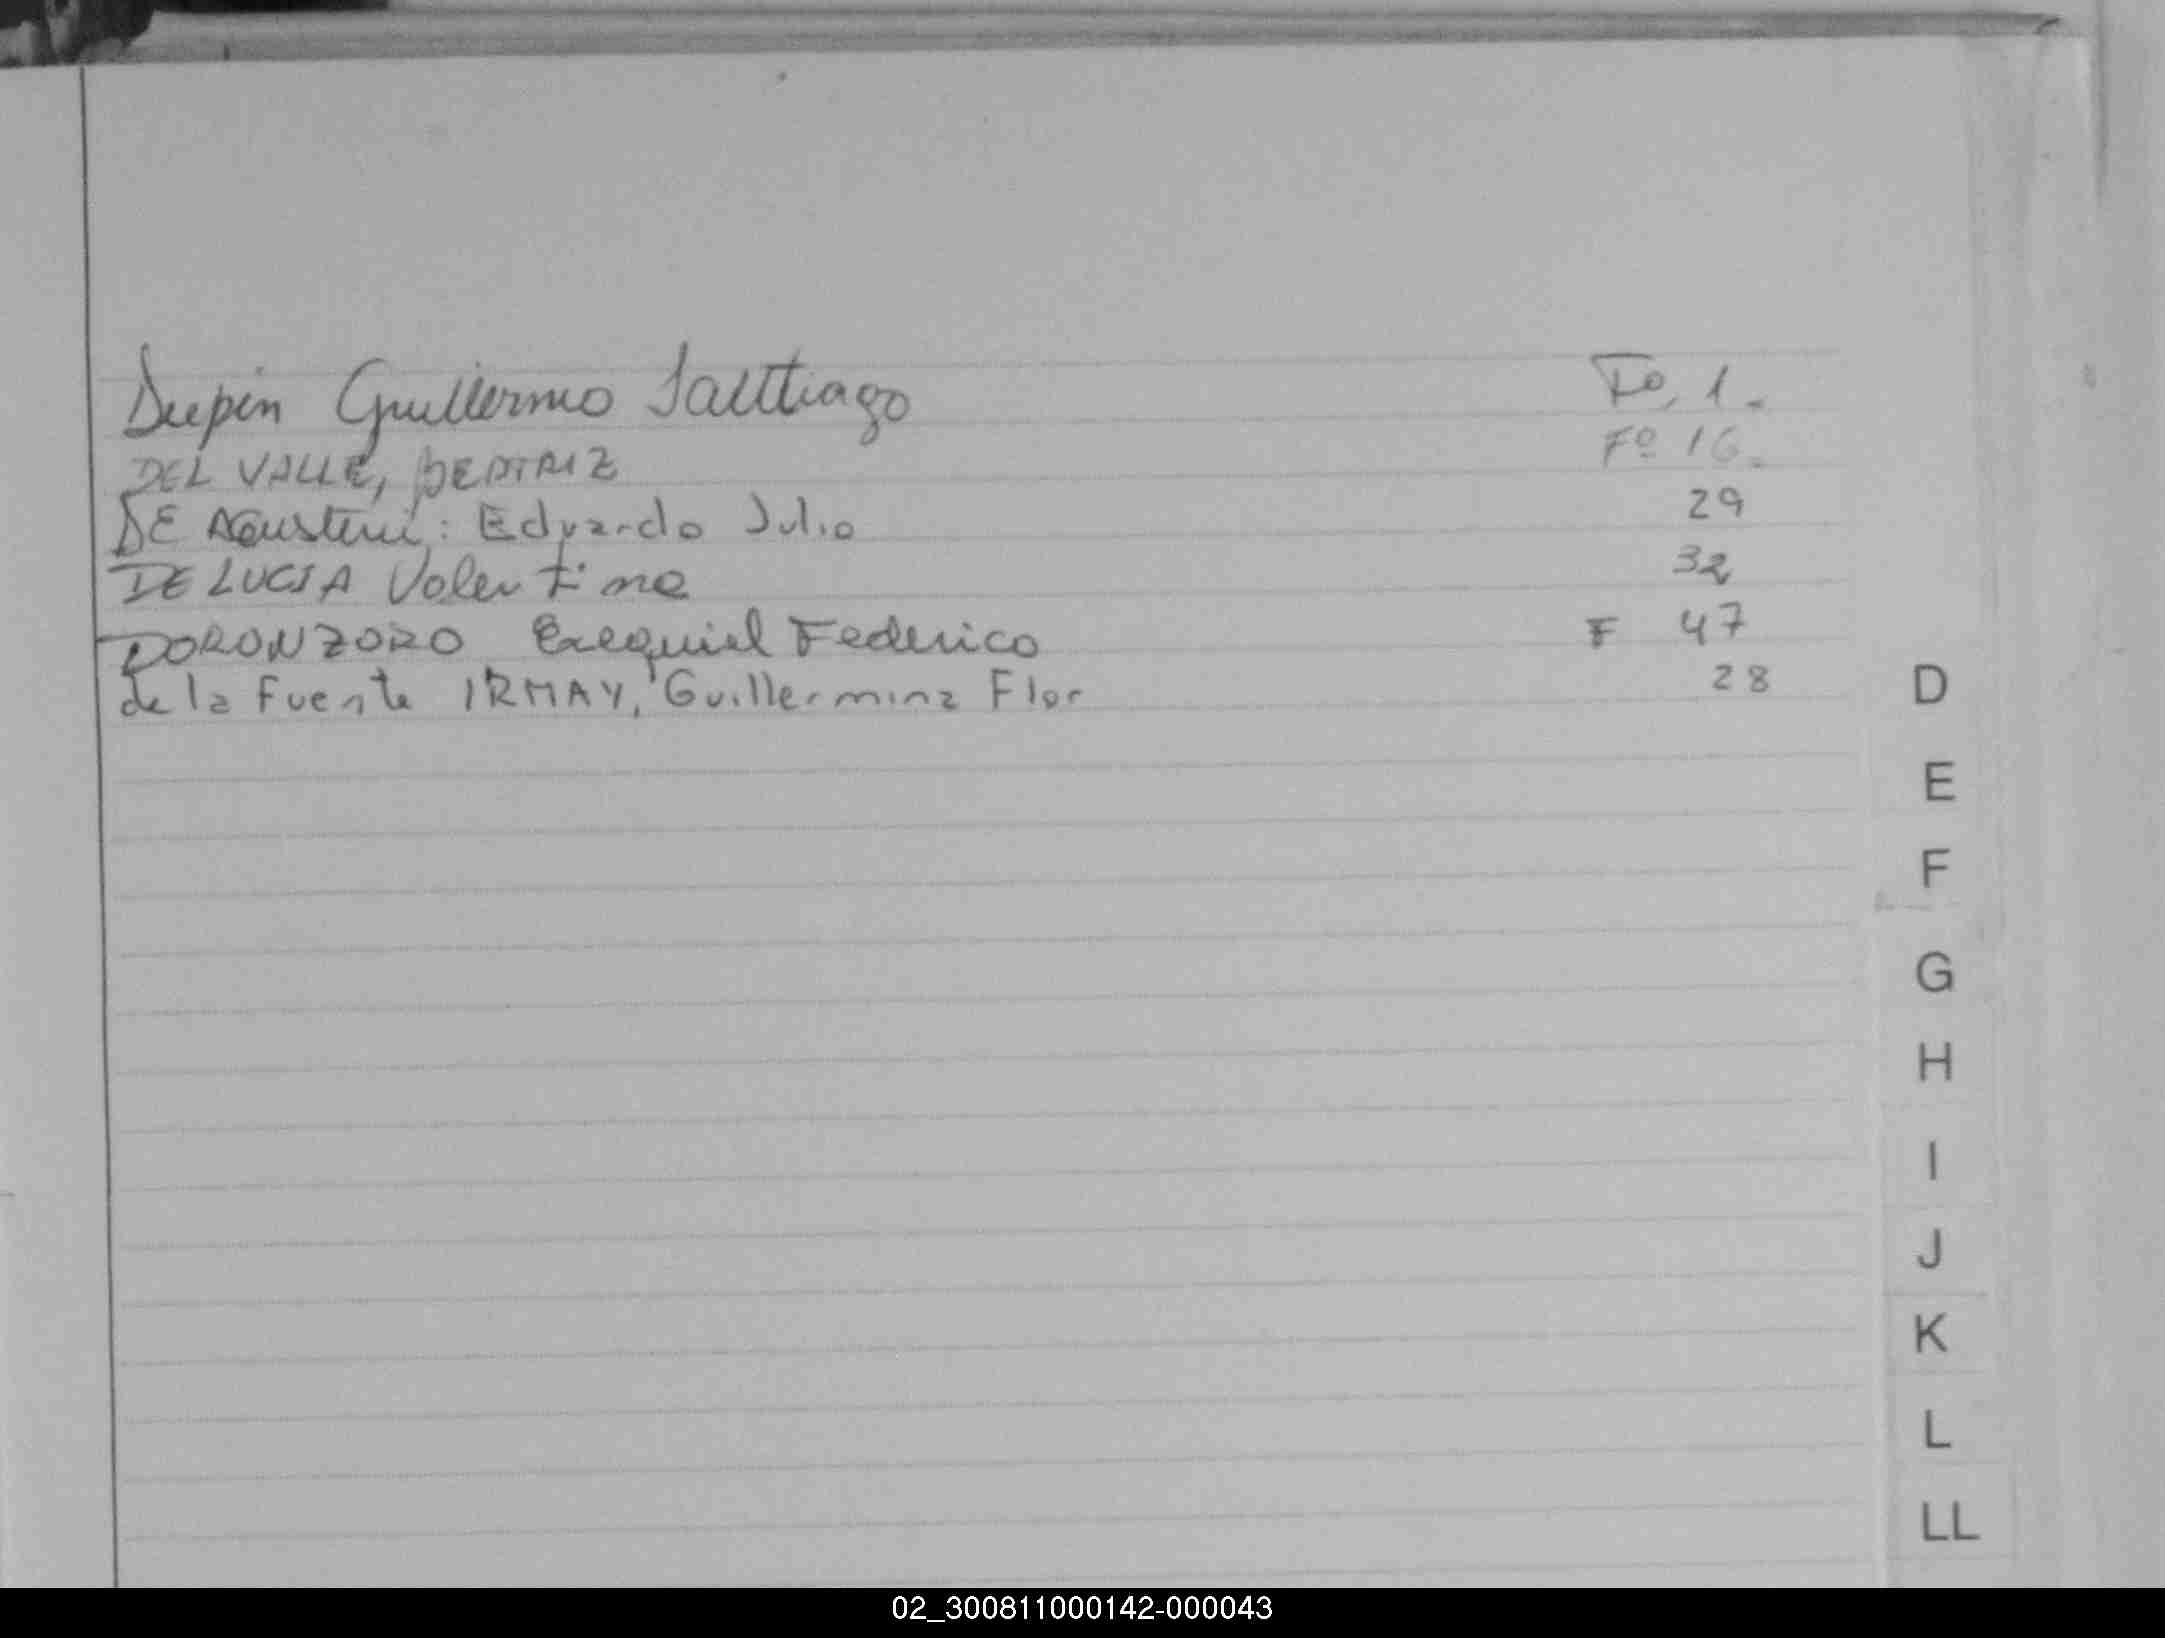 Depin Guillermo Santtiago Fo. 1.-
DEL VALLE, BEATRIZ Fº 16.-
DE Agustini: Eduardo Julio 29
DE LUCIA Valentina 32
DORONZORO Exequiel Federico F 47
de la Fuente IRMAY, Guillermina Flor 28
D
E
F
G
H
I
J
K
L
LL
02_300811000142-000043